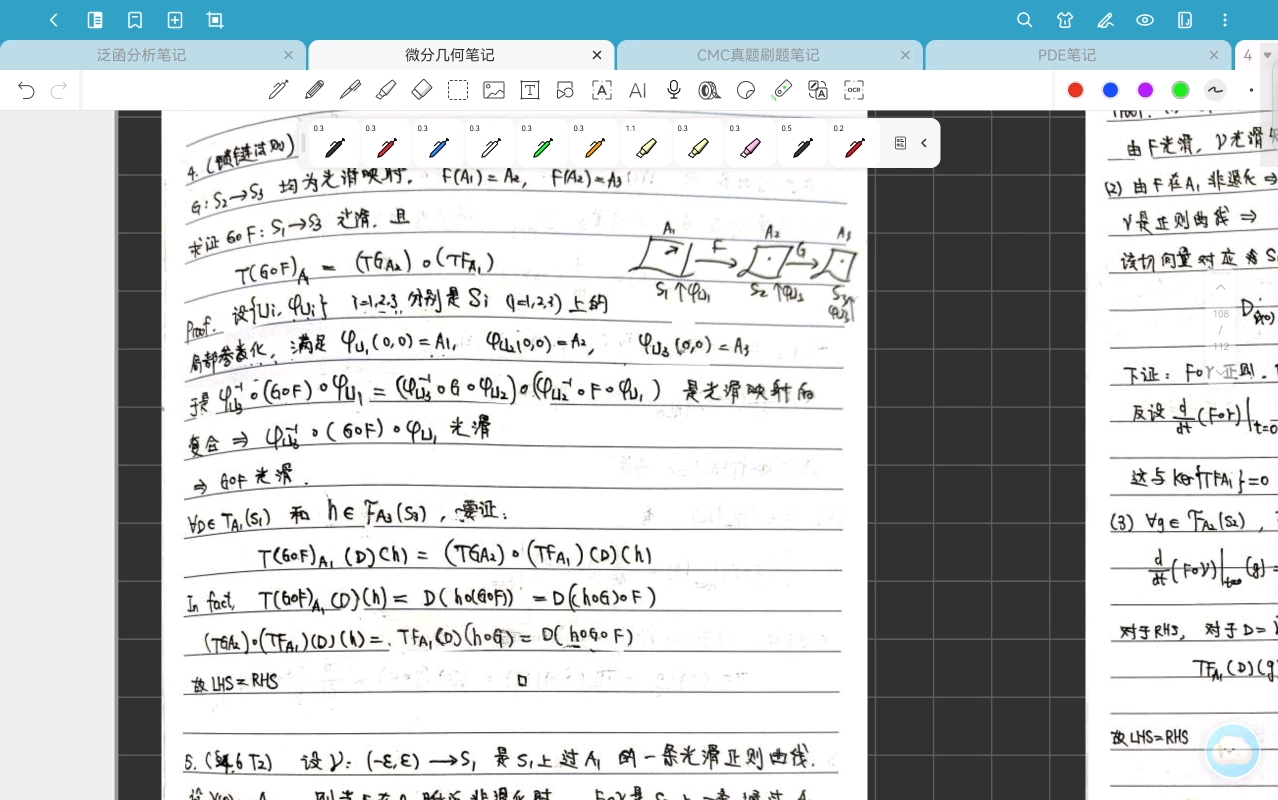 泛函分析笔记
微分几何笔记
CMC真题刷题笔记
PDE笔记
4
AI
OCR
0.3 0.3 0.3 0.3 0.3 0.3 1.1 0.3 0.3 0.5 0.2
4. (锁链法则)
G: S₂→S₃ 均为光滑映射, F(A₁)=A₂, F(A₂)=A₃
求证 G∘F: S₁→S₃ 光滑, 且
T(G∘F)_A = (TG_{A₂})∘(TF_{A₁})
A₁ F A₂ G A₃
S₁ ↑φ_{U₁} S₂ ↑φ_{U₃} S₃ φ_{U₃}
Proof. 设{Ui, φ_{Ui}} i=1,2,3 分别是 Si (i=1,2,3) 上的
局部参数化, 满足 φ_{U₁}(0,0)=A₁, φ_{U₂}(0,0)=A₂, φ_{U₃}(0,0)=A₃
于是 φ_{U₃}⁻¹∘(G∘F)∘φ_{U₁} = (φ_{U₃}⁻¹∘G∘φ_{U₂})∘(φ_{U₂}⁻¹∘F∘φ_{U₁}) 是光滑映射的
复合 ⇒ φ_{U₃}⁻¹∘(G∘F)∘φ_{U₁} 光滑
⇒ G∘F 光滑.
∀D∈T_{A₁}(S₁) 和 h∈F_{A₃}(S₃), 要证:
T(G∘F)_{A₁}(D)(h) = (TG_{A₂})∘(TF_{A₁})(D)(h)
In fact, T(G∘F)_{A₁}(D)(h) = D(h∘(G∘F)) = D((h∘G)∘F)
(TG_{A₂})∘(TF_{A₁})(D)(h) = TF_{A₁}(D)(h∘G) = D(h∘G∘F)
故 LHS=RHS □
5. (§4.6 T2) 设 γ: (-ε,ε)→S₁ 是 S₁上过 A₁ 的一条光滑正则曲线.
由F光滑, γ光滑
(2) 由F在A₁非退化 ⇒
γ是正则曲线 ⇒
该切向量对应为
108
/
112
下证: F∘γ正则.
反设 d/dt(F∘γ)|_{t=0}
这与 Ker{TF_{A₁}}=0
(3) ∀g∈F_{A₂}(S₂),
d/dt(F∘γ)|_{t=0}(g) =
对于RHS, 对于D=
TF_{A₁}(D)(g
故 LHS=RHS